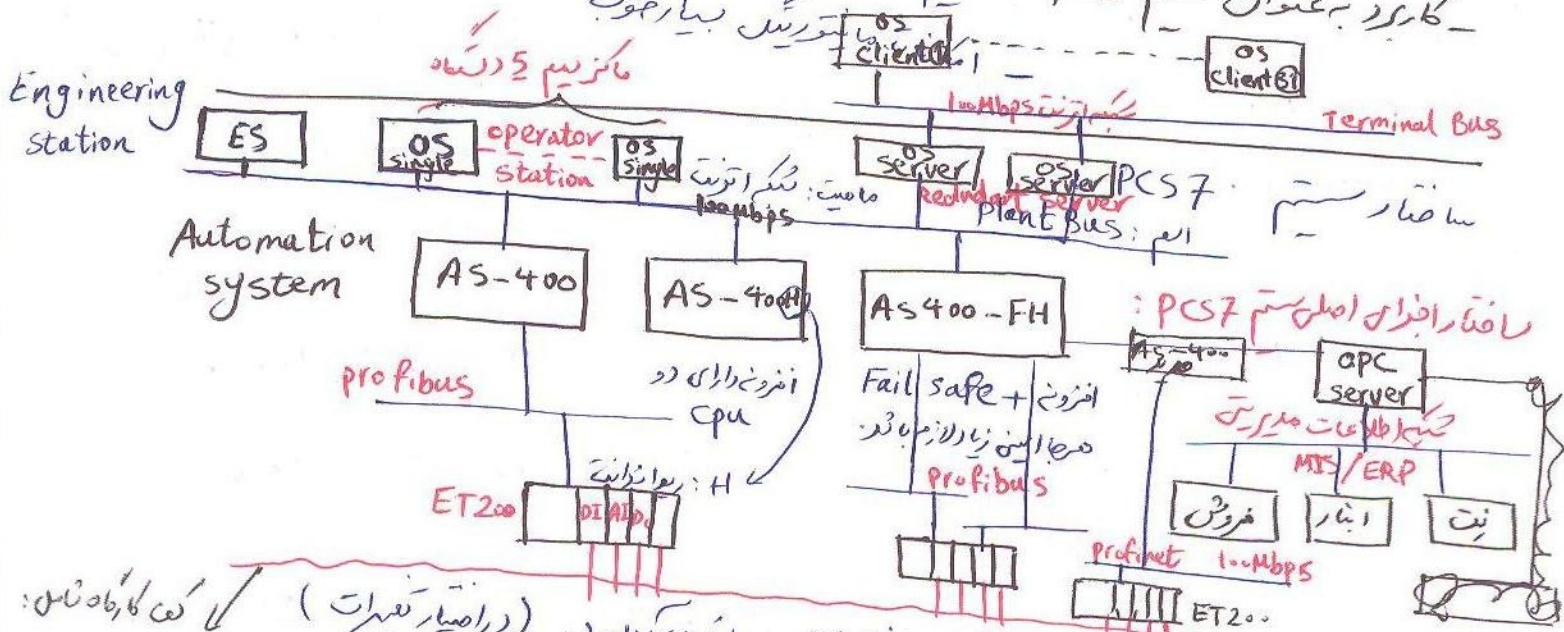 - کاربرد به عنوان
مانیتورینگ بسیار خوب
OS Client
OS Client 32
ماکزیمم 5 دستگاه
Engineering station
ES
OS single
operator station
OS single
شبکه اترنت 100Mbps
Terminal Bus
OS server
OS server
Redundant server
ماهیت: شبکه اترنت 100Mbps
اسم: Plant Bus
ساختار سیستم PCS7
Automation system
AS-400
AS-400H
AS400-FH
ساختار اجزای اصلی سیستم PCS7:
AS-400 جدید
OPC server
profibus
افزونه دارای دو cpu
Fail safe + افزونه
هر جا ایمنی زیاد لازم باشد.
شبکه اطلاعات مدیریتی
MIS/ERP
H: ریداندانت
profibus
فروش
انبار
نت
ET200
DI
AI
profinet 100Mbps
ET200
کف کارگاه شامل:
(در اختیار تعمیرات)